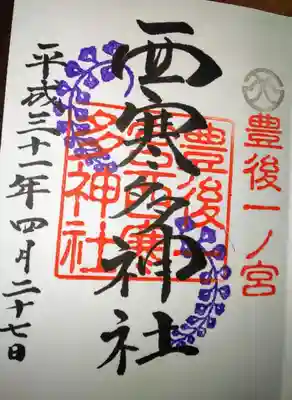 豊後一ノ宮
西寒多神社
豊後一宮西寒多神社
平成三十一年四月二十七日